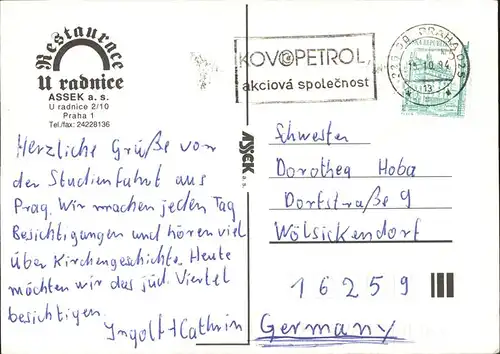 Restaurace
U radnice
ASSEK a. s.
U radnice 2/10
Praha 1
Tel./fax: 24228136
Herzliche Grüße von
der Studienfahrt aus
Prag. Wir machen jeden Tag
Besichtigungen und hören viel
über Kirchengeschichte. Heute
möchten wir das jüd. Viertel
besichtigen.
Ingolf + Cathrin
ASSEK a. s.
KOVOPETROL,
akciová společnost
PRAHA 025
10.94
13
Schwester
Dorothea Hoba
Dorfstraße 9
Wölsickendorf
16259
Germany